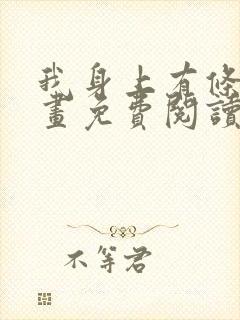 我身上有條
畫免費閱讀
不等君